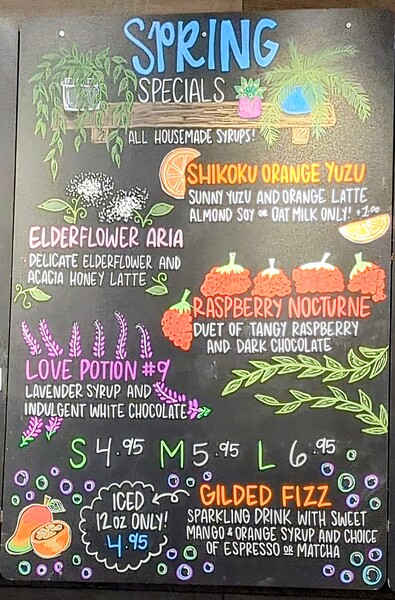 SPRING
SPECIALS
ALL HOUSEMADE SYRUPS!
SHIKOKU ORANGE YUZU
SUNNY YUZU AND ORANGE LATTE
ALMOND SOY OR OAT MILK ONLY! +1.00
ELDERFLOWER ARIA
DELICATE ELDERFLOWER AND
ACACIA HONEY LATTE
RASPBERRY NOCTURNE
DUET OF TANGY RASPBERRY
AND DARK CHOCOLATE
LOVE POTION #9
LAVENDER SYRUP AND
INDULGENT WHITE CHOCOLATE
S 4.95 M 5.95 L 6.95
ICED
12 OZ ONLY!
4.95
GILDED FIZZ
SPARKLING DRINK WITH SWEET
MANGO & ORANGE SYRUP AND CHOICE
OF ESPRESSO OR MATCHA